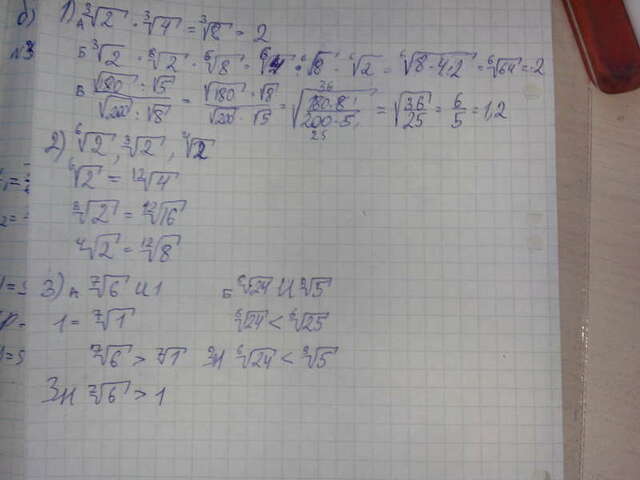 б)
N3
1) А ∛2 · ∛4 = ∛8 = 2
Б ∛2 · ⁶√2 · ⁶√8 = ⁶√4 · ⁶√8 · ⁶√2 = ⁶√8·4·2 = ⁶√64 = 2
В √180 : √5 / √200 : √8 = √180 · √8 / √200 · √5 = √180·8 / 200·5 = √36/25 = 6/5 = 1,2
2) ⁶√2, ∛2, ⁴√2
⁶√2 = ¹²√4
∛2 = ¹²√16
⁴√2 = ¹²√8
3) А ⁷√6 и 1
1 = ⁷√1
⁷√6 > ⁷√1
Зн ⁷√6 > 1
Б ⁶√24 и ∛5
⁶√24 < ⁶√25
Зн ⁶√24 < ∛5